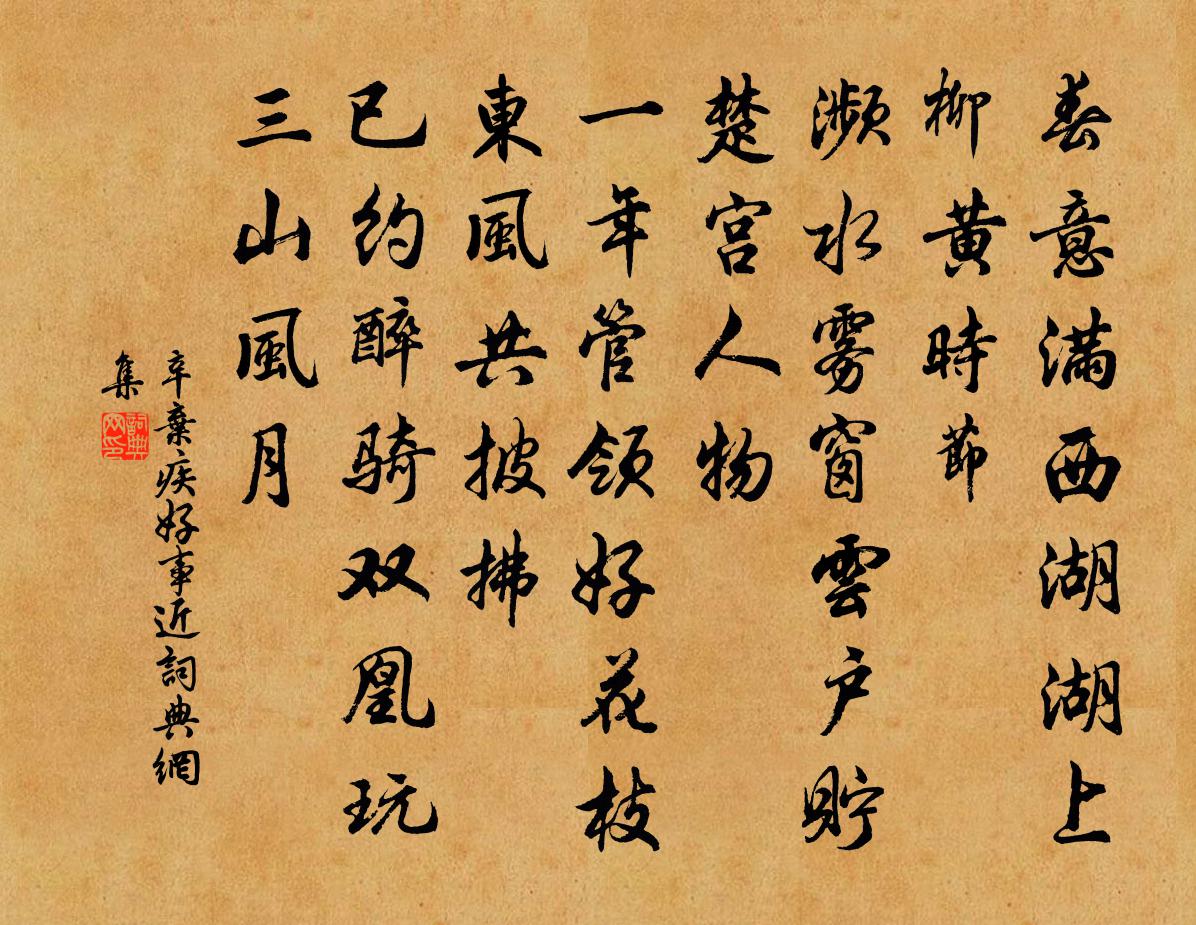 春意滿西湖湖上
柳黄時節
瀕水雾窗雲户貯
楚宫人物
一年管領好花枝
東風共披拂
已約醉騎双凰玩
三山風月
辛棄疾好事近詞典網
集
詞典网印